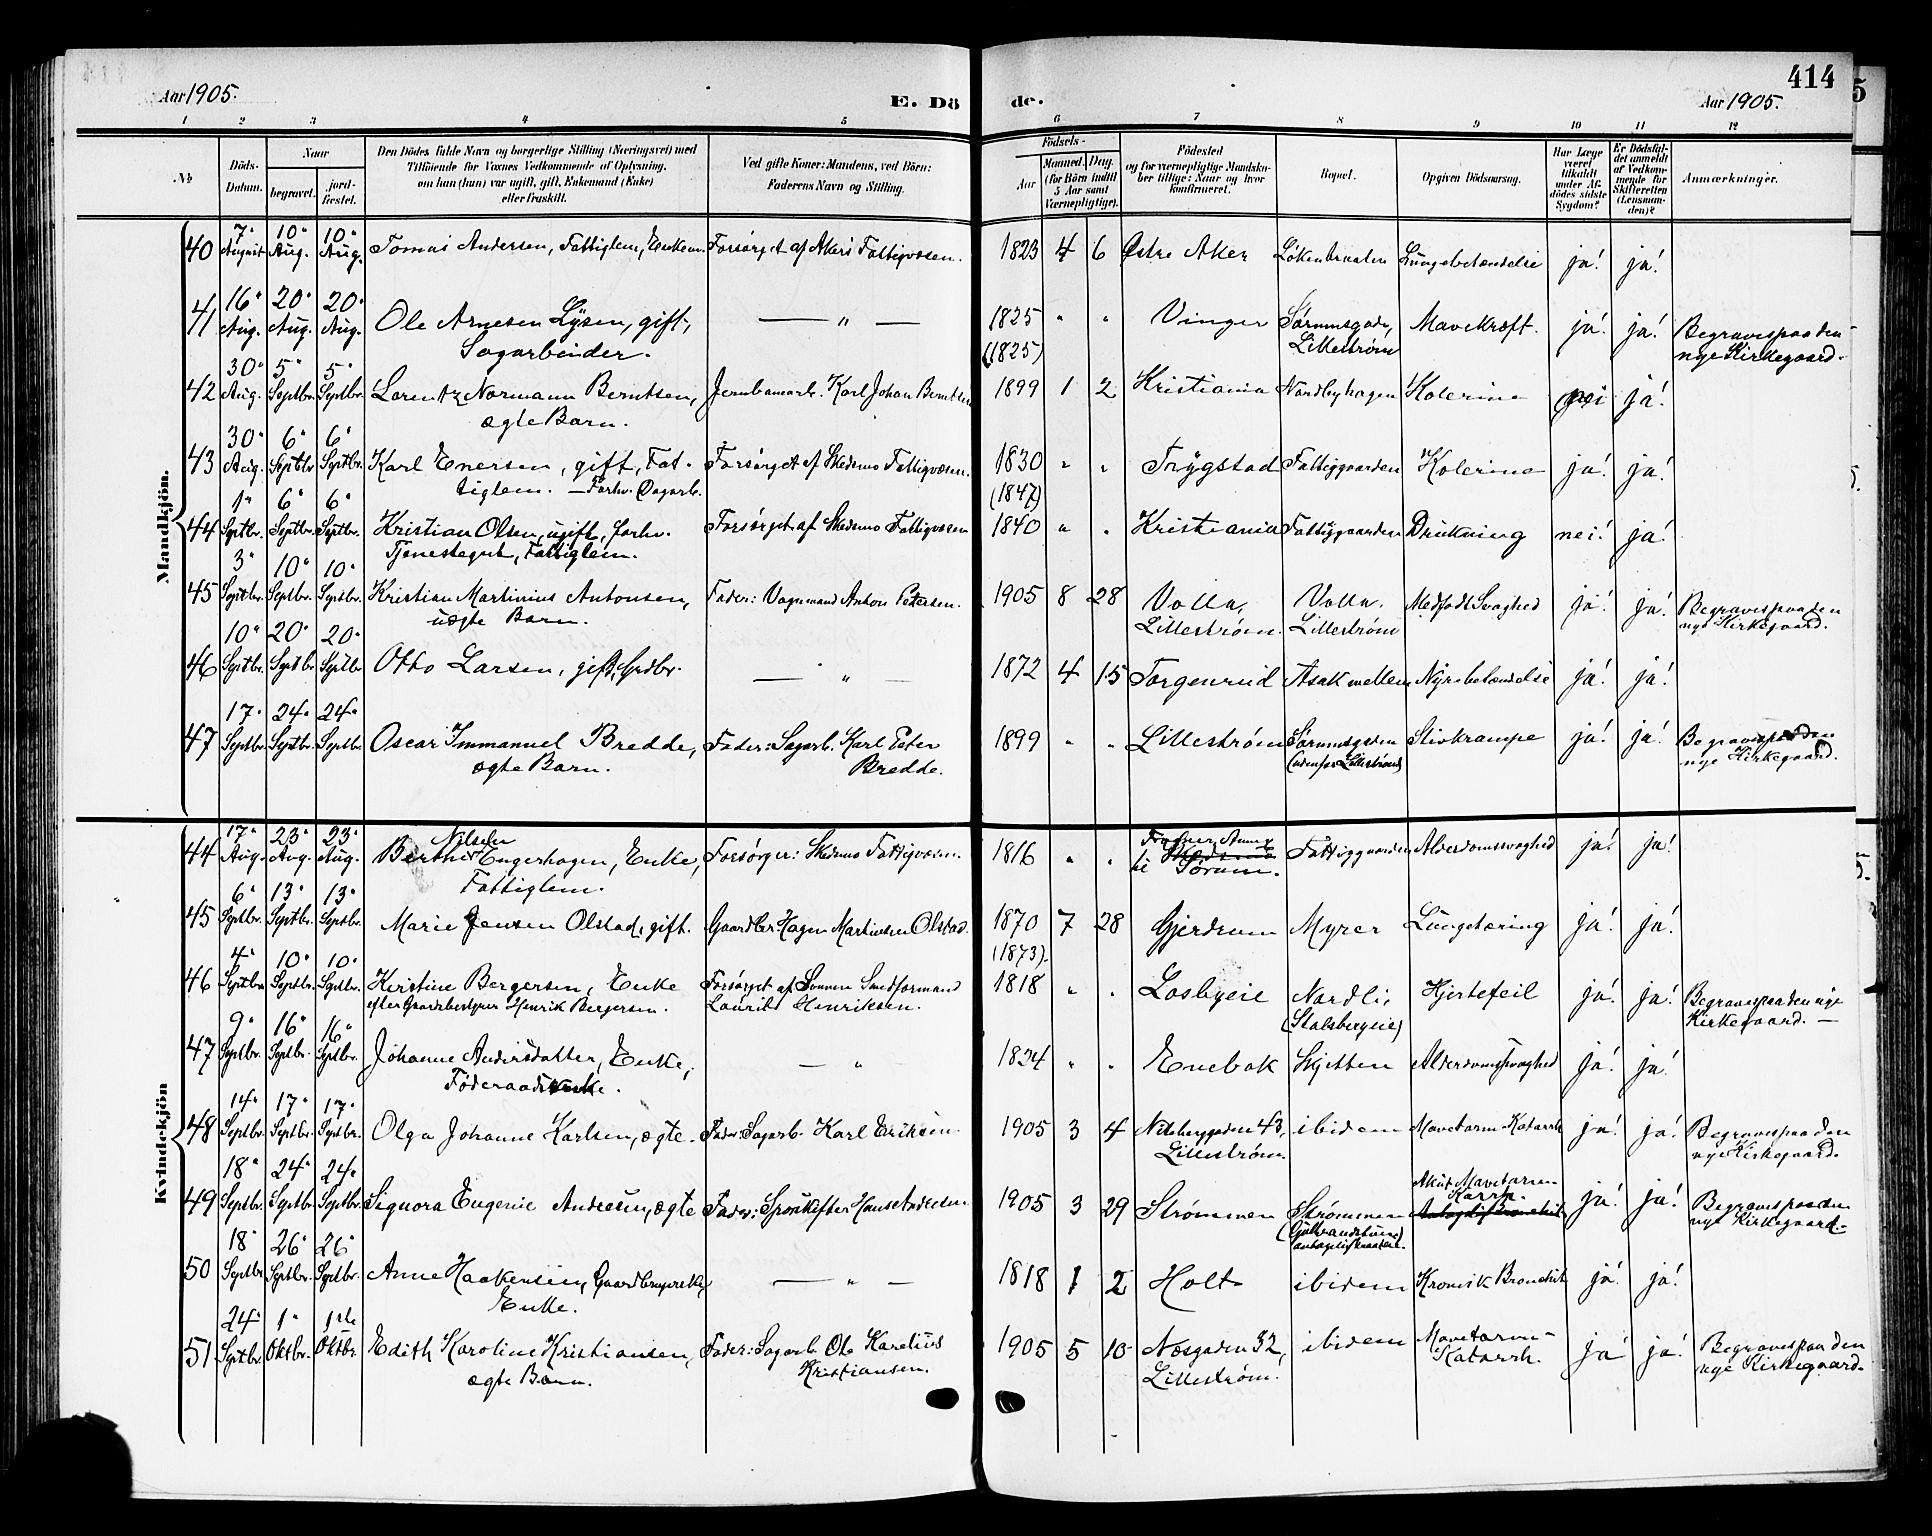 414
Aar 1905.
E. Dö de.
Aar 1905.
1 2 3 4 5 6 7 8 9 10 11 12
No
Döds-Datum.
Naar
begravet.
jord-fæstet.
Den Dödes fulde Navn og borgerlige Stilling (Næringsvei) med
Tilföiende for Voxnes Vedkommende af Oplysning,
om han (hun) var ugift, gift, Enkemand (Enke)
eller fraskilt.
Ved gifte Koner: Mandens, ved Börn:
Faderens Navn og Stilling.
Födsels-
Aar
Maaned. Dag.
(for Börn indtil
5 Aar samt
Værnepligtige).
Födested
og for værnepligtige Mandskaber tillige: Naar og hvor
konfirmeret.
Bopæl.
Opgiven Dödsaarsag.
Har Læge været tilkaldt under Afdödes sidste Sygdom?
Er Dödsfaldet anmeldt af Vedkommende for Skifteretten (Lensmanden)?
Anmærkninger.
Mandkjön.
40 7' August 10' Aug. 10' Aug. Tomas Andersen, Fattiglem, Enkem. Forsørget af Akers Fattigvæsen. 1823 4 6 Østre Aker Løkenbraaten Lungebetændelse ja! ja!
41 16' Aug. 20' Aug. 20' Aug. Ole Arnesen Lysen, gift, — " — 1825 " " Vinger Sørumsgaden, Mavekræft. ja! ja! Begraves paa den
Sagarbeider. (1825) Lillestrøm nye Kirkegaard.
42 30' Aug. 5' Septbr. 5' Septbr. Lorentz Normann Berntsen, Jernbanearb. Karl Johan Berntsen 1899 1 2 Kristiania Nordbyhagen Kolerine nei ja!
ægte Barn.
43 30' Aug. 6' Septbr. 6' Septbr. Karl Enersen, gift, Fat- Forsørget af Skedsmo Fattigvæsen. 1830 " " Trygstad Fattiggaarden Kolerine ja! ja!
tiglem. — Forhv. Dagarb. (1847)
44 1' Septbr. 6' Septbr. 6' Septbr. Kristian Olsen, ugift, forhv. Forsørget af Skedsmo Fattigvæsen 1840 " " Kristiania Fattiggaarden Drukning nei! ja!
Tjenestegut, Fattiglem.
45 3' Septbr. 10' Septbr. 10' Septbr. Kristian Martinius Antonsen, Fader: Vognmand Anton Petersen. 1905 8 28 Volla, Volla. Medfødt Svaghed ja! ja! Begraves paa den
uægte Barn. Lillestrøm. Lillestrøm nye Kirkegaard.
46 10' Septbr. 20' Septbr. 20' Septbr. Otto Larsen, gift, Grdbr. — " — 1872 4 15 Torgenrud Asak mellem Nyrebetændelse ja! ja!
47 17' Septbr. 24' Septbr. 24' Septbr. Oscar Immanuel Bredde, Fader: Sagarb. Karl Peter 1899 " " Lillestrøm Sørumsgaden Stivkrampe ja! ja! Begraves paa den
ægte Barn. Bredde. (udenfor Lillestrøm) nye Kirkegaard.
Kvindekjön
44 17' Aug. 23' Aug. 23' Aug. Berthe Nilsdtr Engerhagen, Enke, Forsørger: Skedsmo Fattigvæsen. 1816 " " Frogner Annex Fattiggaarden Alderdomssvaghed ja! ja!
Fattiglem. til Sørum.
45 6' Septbr. 13' Septbr. 13' Septbr. Marie Jensen Olstad, gift. Gaardbr. Hagen Martinsen Olstad. 1870 7 28 Gjerdrum Myrer Lungetæring ja! ja!
(1873).
46 4' Septbr. 10' Septbr. 10' Septbr. Kirstine Bergersen, Enke Forsørget af Sønnen Smedformand 1818 " " Losbyeie Nordli, Hjertefeil ja! ja! Begraves paa den nye
efter Gaardbestyrer Henrik Bergersen. Laurits Henriksen. (Stalsbergeie) Kirkegaard. —
47 9' Septbr. 16' Septbr. 16' Septbr. Johanne Andersdatter, Enke, — " 1824 " " Enebak Skjetten Alderdomssvaghed ja! ja!
Føderaadsenke.
48 14' Septbr. 17' Septbr. 17' Septbr. Olga Johanne Karlsen, ægte. Fader: Sagarb. Karl Eriksen. 1905 3 4 Nitebergaden 43, ibidem Mavetarm-Katarrh ja! ja! Begraves paa den
Lillestrøm. nye Kirkegaard.
49 18' Septbr. 24' Septbr. 24' Septbr. Signora Eugenie Andresen, ægte Fader: Hans Andersen 1905 3 29 Strømmen Strømmen Akut Mavetarm- ja! ja! Begraves paa den
Katarrh. nye Kirkegaard.
50 18' Septbr. 26' Septbr. 26' Septbr. Anne Haakensen, — " — 1818 1 2 Holt ibidem Kronisk Bronchit ja! ja!
Enke.
51 24' Septbr. 1' Oktbr. 1ste Oktbr. Edith Karoline Kristiansen, Fader: Sagarb. Ole Karelius 1905 5 10 Næsgaden 32, ibidem Mavetarm- ja ja! Begraves paa den
ægte Barn. Kristiansen. Lillestrøm. Katarrh. nye Kirkegaard.